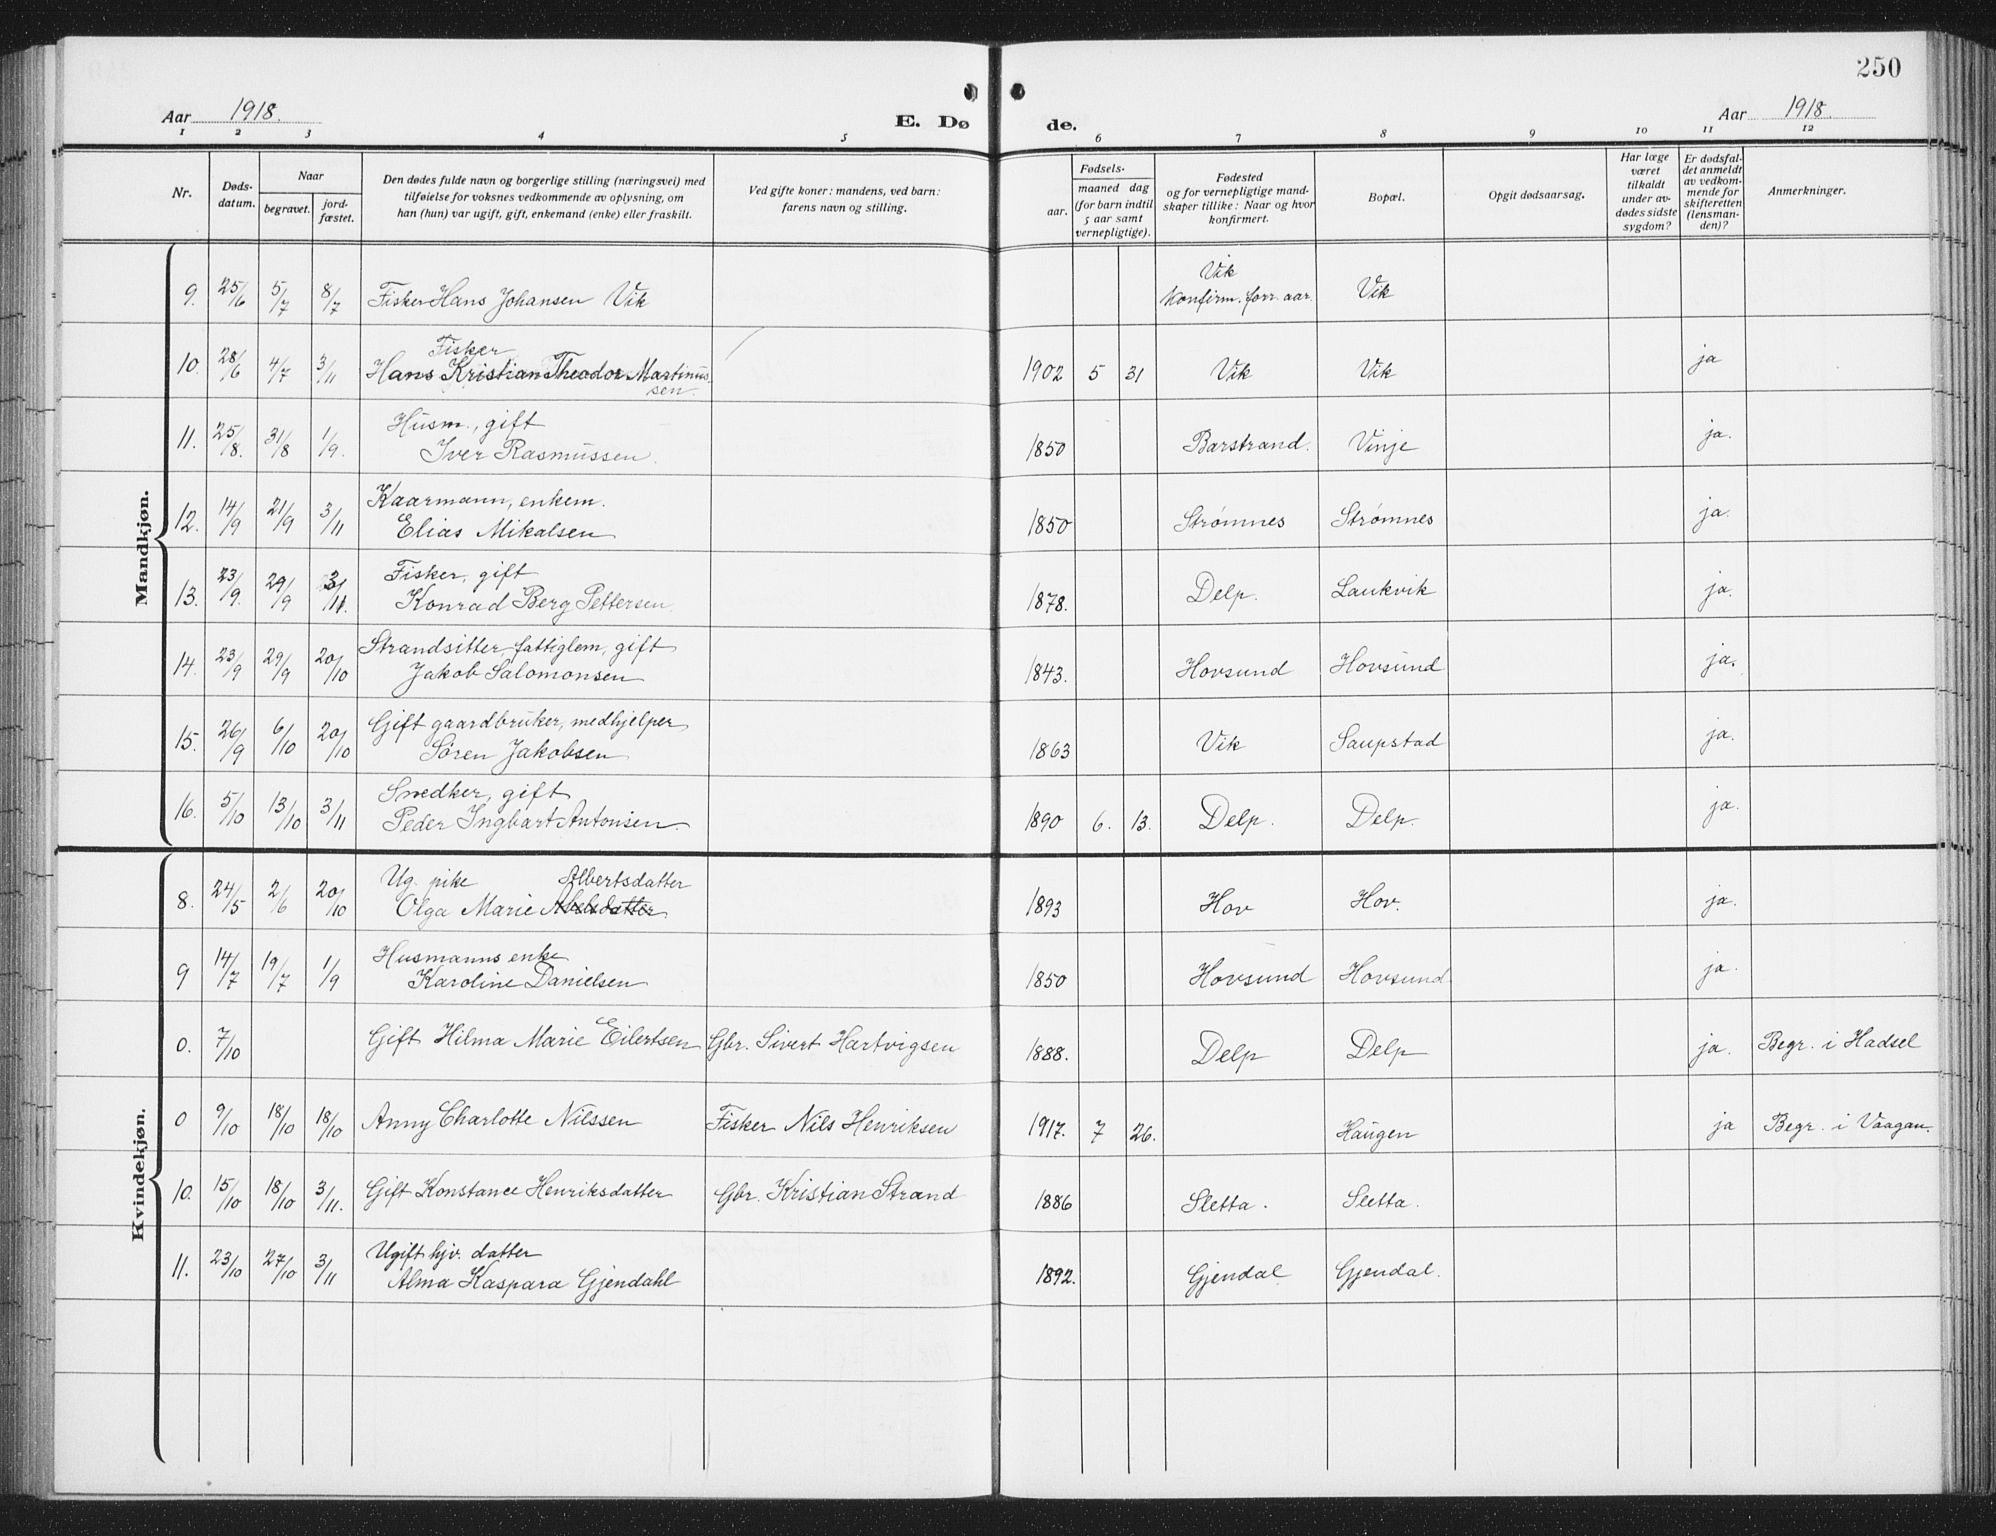 250
Aar 1918. E. Dø de. Aar 1918.
1 2 3 4 5 6 7 8 9 10 11 12
Nr. Døds-datum. Naar begravet. jord-fæstet. Den dødes fulde navn og borgerlige stilling (næringsvei) med tilføielse for voksnes vedkommende av oplysning, om han (hun) var ugift, gift, enkemand (enke) eller fraskilt. Ved gifte koner: mandens, ved barn: farens navn og stilling. Fødsels- aar. maaned dag (for barn indtil 5 aar samt vernepligtige). Fødested og for vernepligtige mand-skaper tillike: Naar og hvor konfirmert. Bopæl. Opgit dødsaarsag. Har læge været tilkaldt under av-dødes sidste sygdom? Er dødsfal-det anmeldt av vedkom-mende for skifteretten (lensman-den)? Anmerkninger.
Mandkjøn.
9. 25/6 5/7 8/7 Fisker Hans Johansen Vik Vik Konfirm. forr. aar. Vik
10. 28/6 4/7 3/11 Fisker Hans Kristian Theodor Martinus-sen. 1902 5 31 Vik Vik ja
11. 25/8. 31/8 1/9. Husm., gift Iver Rasmussen. 1850 Barstrand. Vinje ja.
12. 14/9 21/9 3/11 Kaarmann, enkem. Elias Mikalsen 1850 Strømnes Strømnes ja.
13. 23/9. 29/9 3/11. Fisker, gift Konrad Berg Pettersen. 1878. Delp. Laukvik ja.
14. 23/9 29/9 20/10 Strandsitter fattiglem, gift Jakob Salomonsen 1843. Hovsund Hovsund ja.
15. 26/9 6/10 20/10 Gift gaardbruker, medhjelper Søren Jakobsen 1863 Vik Saupstad ja.
16. 5/10 13/10 3/11 Snedker, gift Peder Ingbart Antonsen. 1890 6. 13. Delp. Delp. ja.
Kvindekjøn.
8. 24/5 2/6 20/10 Ug. pike Albertsdatter Olga Marie Abelsdatter 1893 Hov Hov. ja.
9 14/7 19/7 1/9 Husmanns enke Karoline Danielsen 1850 Hovsund Hovsund ja.
0. 7/10 Gift Hilma Marie Eilertsen Gbr. Sivert Hartvigsen 1888. Delp Delp ja. Begr. i Hadsel
0 9/10 18/10 18/10 Anny Charlotte Nilssen Fisker Nils Henriksen 1917. 7 26. Haugen ja Begr. i Vaagan.
10. 15/10 18/10 3/11. Gift Konstance Henriksdatter Gbr. Kristian Strand 1886 Sletta. Sletta.
11. 23/10 27/10 3/11 Ugift hjv. datter Alma Kaspara Gjendahl 1892. Gjendal Gjendal.